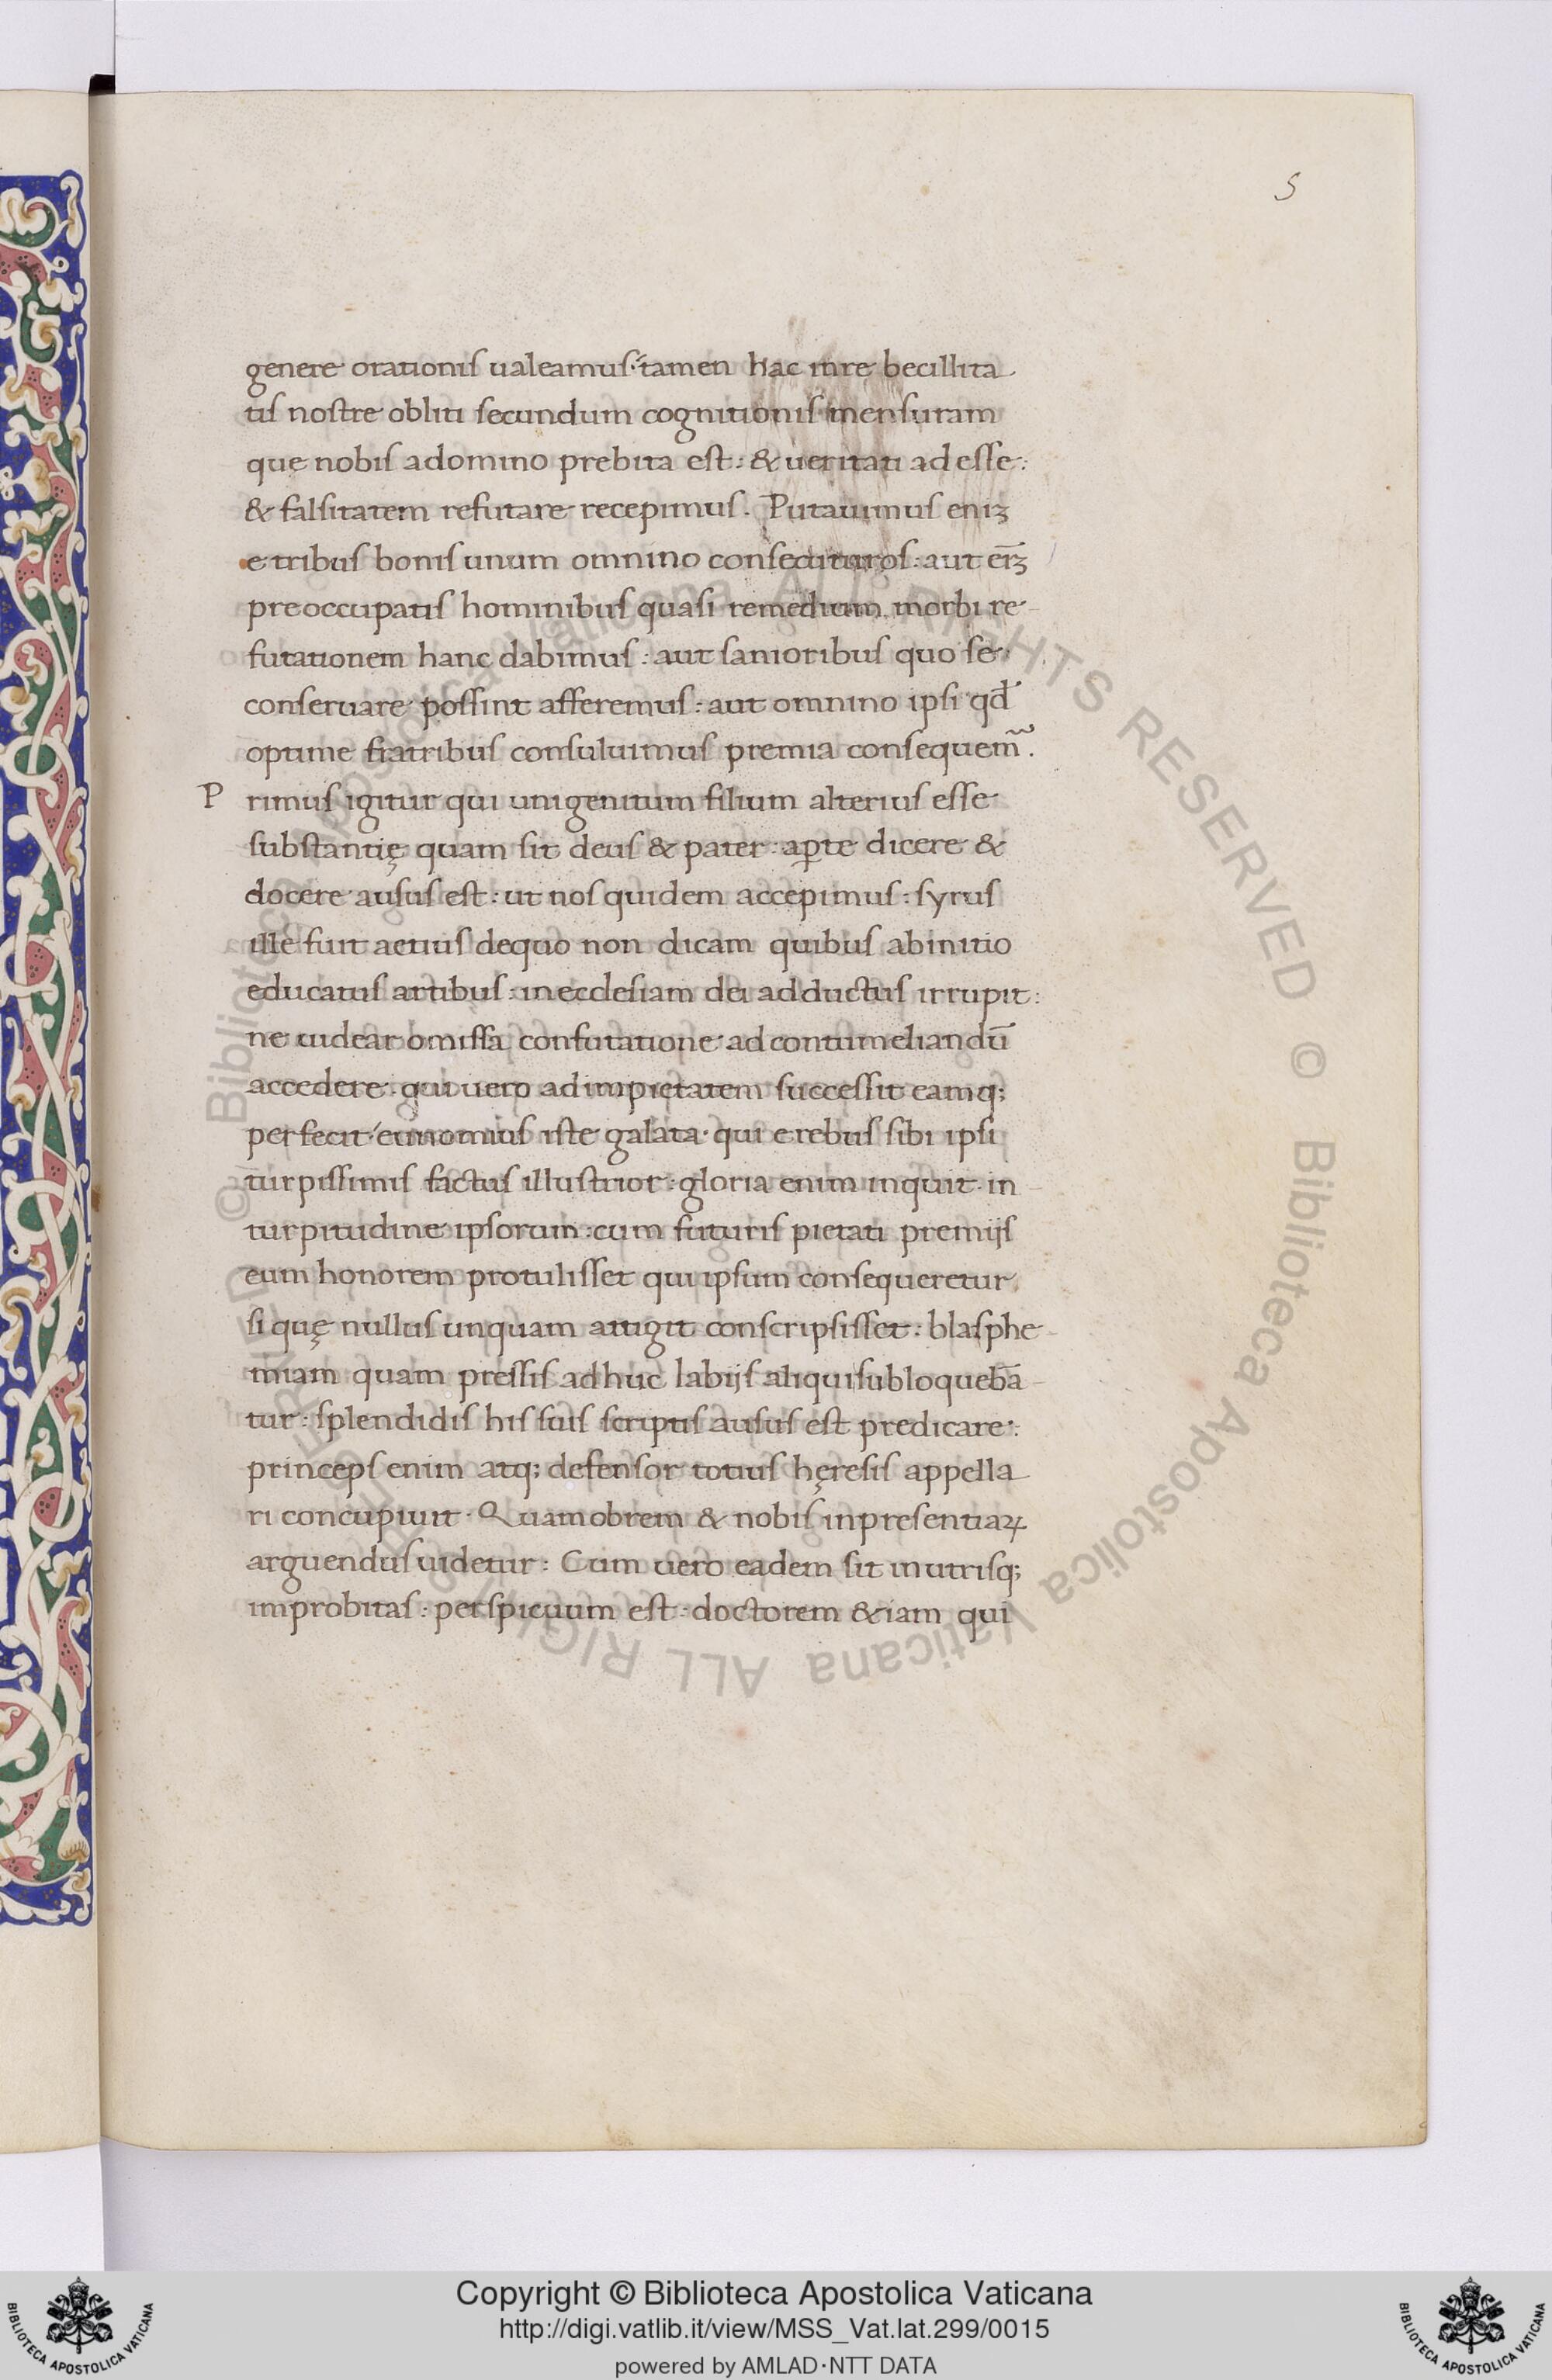 5
genere orationis ualeamus· tamen hac in re becillita
tis nostre obliti secundum cognitionis mensuram
que nobis a domino prebita est : & ueritati ad esse :
& falsitatem refutare recepimus . Putauimus eniꝫ
e tribus bonis unum omnino consecuturos : aut eīꝫ
preoccupatis hominibus quasi remedium morbi re-
futationem hanc dabimus : aut sanioribus quo se
conseruare possint afferemus : aut omnino ipsi qđ
optime fratribus consuluimus premia consequem̃ .
P rimus igitur qui unigenitum filium alterius esse
substantię quam sit deus & pater : aꝑte dicere &
docere ausus est : ut nos quidem accepimus : syrus
ille fuit aetius de quo non dicam quibus ab initio
educatus artibus : in ecclesiam dei adductus irrupit :
ne uidear omissa confutatione ad contumeliandū
accedere · qui uero ad impietatem successit eamq;
perfecit · eunomius iste galata · qui e rebus sibi ipsi
turpissimis factus illustrior : gloria enim inquit · in
turpitudine ipsorum : cum futuris pietati premijs
eum honorem protulisset qui ipsum consequeretur
si quę nullus unquam attigit conscripsisset : blasphe-
miam quam pressis adhuc labijs aliqui subloquebā-
tur : splendidis his suis scriptis ausus est predicare :
princeps enim atq; defensor totius hęresis appella
ri concupiuit · Quamobrem & nobis in presentiaꝝ
arguendus uidetur : Cum uero eadem sit in utrisq;
improbitas : perspicuum est : doctorem &iam qui
© Biblioteca Apostolica Vaticana ALL RIGHTS RESERVED © Biblioteca Apostolica Vaticana ALL RIGHTS RESERVED
Copyright © Biblioteca Apostolica Vaticana
http://digi.vatlib.it/view/MSS_Vat.lat.299/0015
powered by AMLAD·NTT DATA
BIBLIOTECA APOSTOLICA VATICANA
BIBLIOTECA APOSTOLICA VATICANA